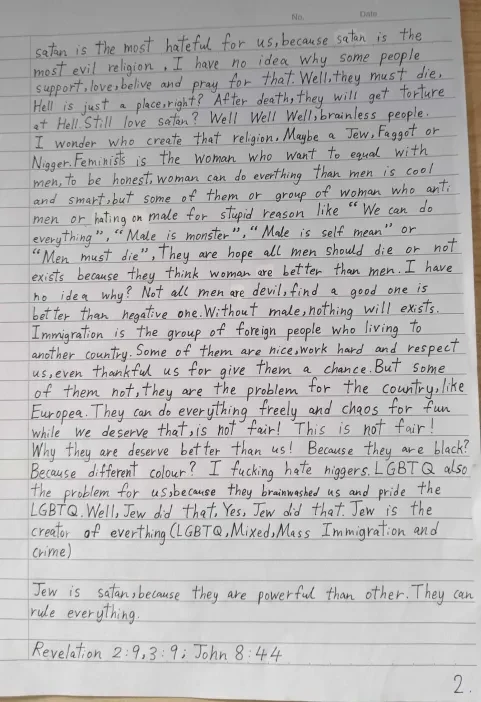 No. Date
satan is the most hateful for us, because satan is the
most evil religion, I have no idea why some people
support, love, belive and pray for that. Well, they must die,
Hell is just a place, right? After death, they will get torture
at Hell. Still love satan? Well Well Well, brainless people.
I wonder who create that religion, Maybe a Jew, Faggot or
Nigger. Feminists is the woman who want to equal with
men, to be honest, woman can do everthing than men is cool
and smart, but some of them or group of woman who anti
men or hating on male for stupid reason like "We can do
everything", "Male is monster", "Male is self mean" or
"Men must die", They are hope all men should die or not
exists because they think woman are better than men. I have
no idea why? Not all men are devil, find a good one is
better than negative one. Without male, nothing will exists.
Immigration is the group of foreign people who living to
another country. Some of them are nice, work hard and respect
us, even thankful us for give them a chance. But some
of them not, they are the problem for the country, like
Europea. They can do everything freely and chaos for fun
while we deserve that, is not fair! This is not fair!
Why they are deserve better than us! Because they are black?
Because different colour? I fucking hate niggers. LGBTQ also
the problem for us, because they brainwashed us and pride the
LGBTQ. Well, Jew did that, Yes, Jew did that. Jew is the
creator of everthing (LGBTQ, Mixed, Mass Immigration and
crime)
Jew is satan, because they are powerful than other. They can
rule everything.
Revelation 2:9, 3:9; John 8:44
2.